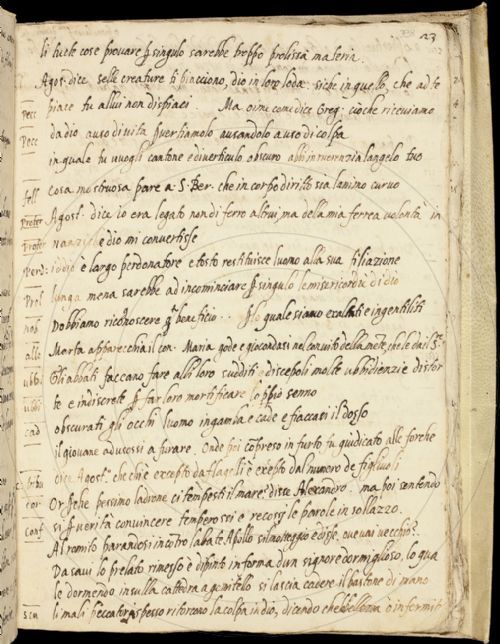 23
li tucte cose provare p singulo sarebbe troppo prolissa materia.
Agos. dice se lle creature ti piacciono, dio in loro loda. siche in quello, che ad te
piace tu allui non dispiaci. Ma oime come dice Greg. cioche riceviamo
Pecc da dio a uso di vita pvertiamolo ausandolo a uso di colpa
Pecc in quale tu vuogli cantone e diverticulo obscuro abbi in reverenzia langelo tuo
fell Cosa mostruosa pare a S. Ber. che in corpo diritto sia lanimo curvo
Profer Agost. dice io era legato non di ferro altrui, ma della mia ferrea volontà in
Profer nanzi che dio mi convertisse
Perd. iddio è largo perdonatore e tosto restituisce luomo alla sua filiazione
Prol lunga mena sarebbe ad incominciare p singulo le misericordie di dio
nob Dobbiamo riconoscere q beneficio.. plo quale siamo exaltati e ingentiliti
alle Marta apparecchia il con. Maria gode e giocondasi nel convito della mente, che le dà il S.
ubbi Gli abbati faccano fare alli loro sudditi discepoli molte ubbidienzie distor
ubbi te e indiscrete p far loro mortificare lo pprio senno
cad obscurati gli occhi luomo ingamba e cade e fiaccasi il dosso
il giovane adussosi a furare. Onde poi copreso in furto fu giudicato alle forche
tribu dice Agost. che chi è excepto da flagelli è exepto dal numero de figliuoli
cor Or pche pessimo ladrone ci tempesti il mare? disse Alexandro. ma poi sentendo
Conf si p verita convincere temperossi e recossi le parole in sollazzo.
Al romito parandosi incotro labate Apollo si lmotteggio e disse, ove vai vecchio?
Da savi lo prelato rimesso è dipinto in forma dun signore cormiglioso, lo qua
le dormendo in sulla cattedra a gomitello si lascia cadere il bastone di mano
li mali peccatori spesso ritorcono la colpa in dio, dicendo che bellezza o infermit